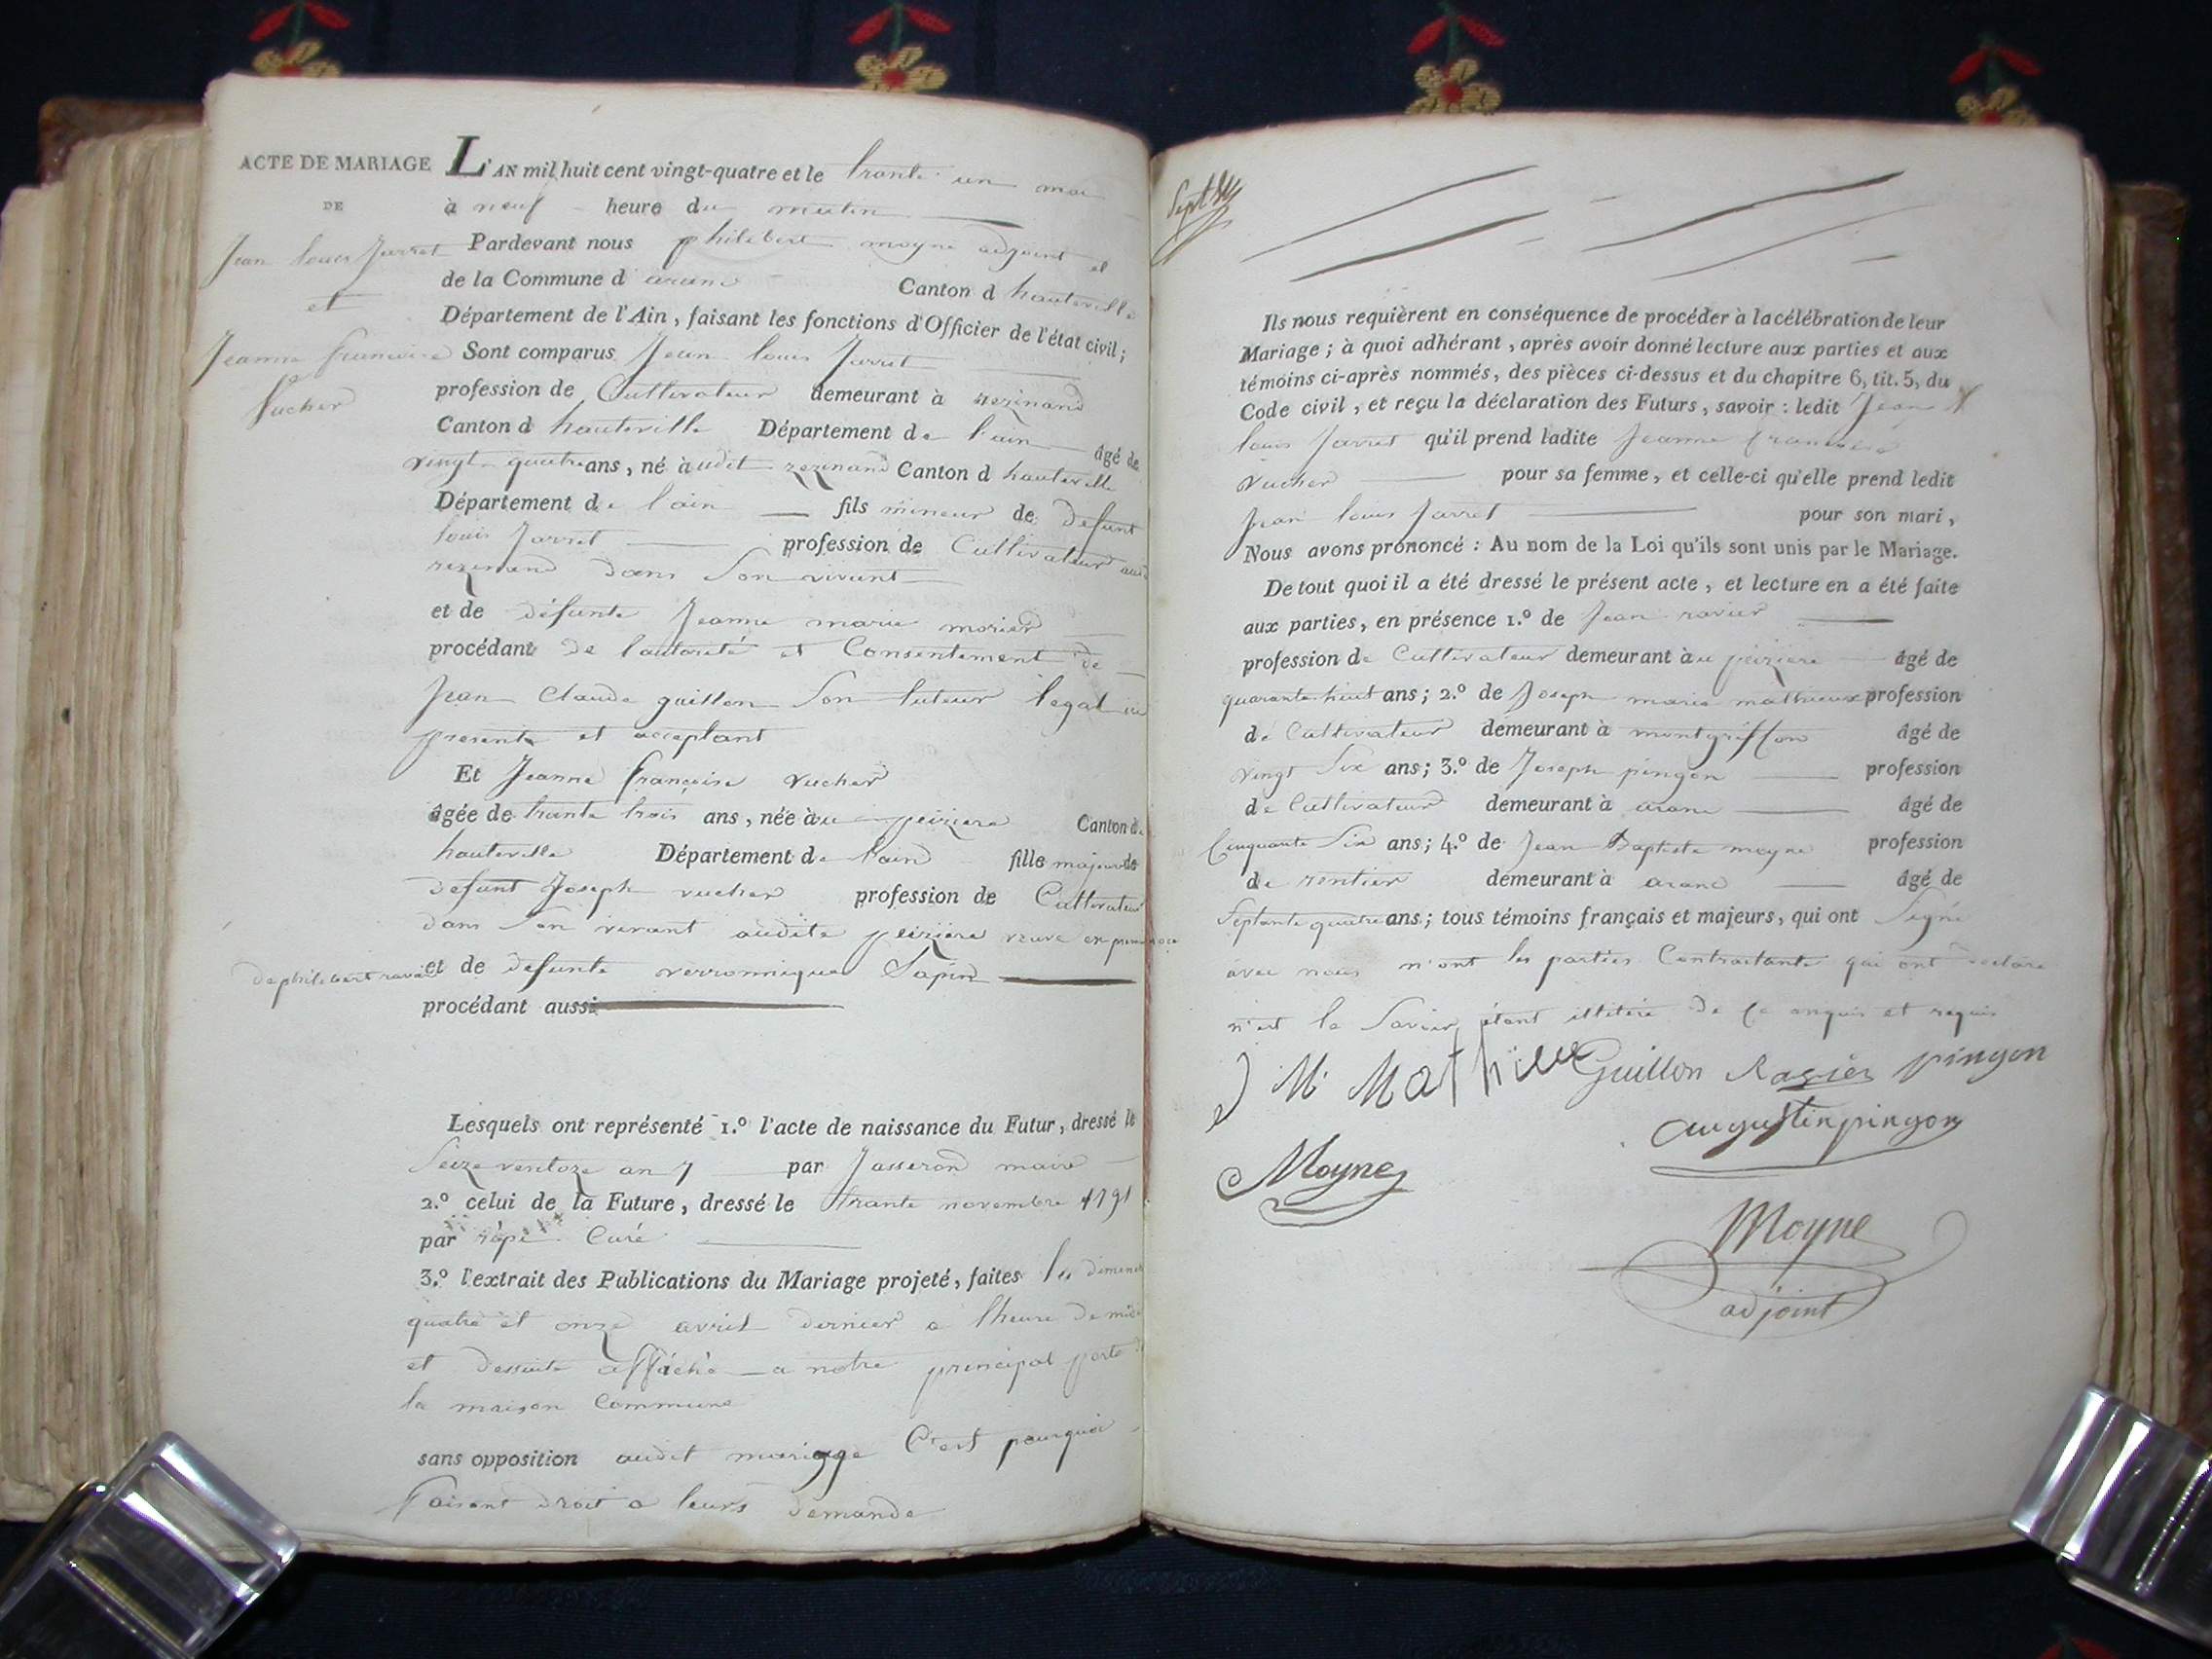 ACTE DE MARIAGE
DE
Jean louis Jarret
et
Jeanne françoise
Vucher
L'AN mil huit cent vingt-quatre et le trante un mai
à neuf heure du matin
Pardevant nous philibert moyne adjoint
de la Commune d aranc Canton d hauteville
Département de l'Ain, faisant les fonctions d'Officier de l'état civil;
Sont comparus Jean louis Jarret
profession de Cultivateur demeurant à rezinand
Canton d hauteville Département de l'ain âgé de
vingt quatre ans, né audit rezinand Canton d hauteville
Département de l'ain fils mineur de défunt
louis Jarret profession de Cultivateur
rezinand dans Son vivant
et de défunte Jeanne marie morier
procédant de l'autorité et Consentement de
Jean Claude guillon Son tuteur légal
présent et acceptant
Et Jeanne françoise vucher
âgée de trante trois ans, née au peiziere Canton de
hauteville Département de l'ain fille majeur de
defunt Joseph vucher profession de Cultivateur
dans Son vivant audite peiziere veuve en
de philibert ravier
et de defunte verronnique Sapin
procédant aussi
Lesquels ont représenté 1.º l'acte de naissance du Futur, dressé le
Seize ventoze an 7 par Jasseron maire
2.º celui de la Future, dressé le trante novembre 1791
par rapé Curé
3.º l'extrait des Publications du Mariage projeté, faites les
quatre et onze avril dernier a lheure de
et dessuite affiché a notre principal porte
la maison Commune
sans opposition audit mariage C'est pourquoi
faisant droit a leurs demande
Ils nous requièrent en conséquence de procéder à la célébration de leur
Mariage; à quoi adhérant, après avoir donné lecture aux parties et aux
témoins ci-après nommés, des pièces ci-dessus et du chapitre 6, tit. 5, du
Code civil, et reçu la déclaration des Futurs, savoir: ledit Jean
louis Jarret qu'il prend ladite Jeanne francoise
vucher pour sa femme, et celle-ci qu'elle prend ledit
Jean louis Jarret pour son mari,
Nous avons prononcé: Au nom de la Loi qu'ils sont unis par le Mariage.
De tout quoi il a été dressé le présent acte, et lecture en a été faite
aux parties, en présence 1.º de Jean ravier
profession de Cultivateur demeurant au peiziere âgé de
quarante huit ans; 2.º de Joseph marie mathieux profession
de Cultivateur demeurant à montgriffon âgé de
vingt Six ans; 3.º de Joseph pingon profession
de Cultivateur demeurant à aranc âgé de
Cinquante Six ans; 4.º de Jean Baptiste moyne profession
de rentier demeurant à aranc âgé de
Septante quatre ans; tous témoins français et majeurs, qui ont Signé
avec nous n'ont les parties Contractante qui ont déclaré
n'est le Savoir étant illitéré de ce enquis et requis
J M Mathieu Guillon Ravier pingon
augustin pingon
Moyne
Moyne
adjoint